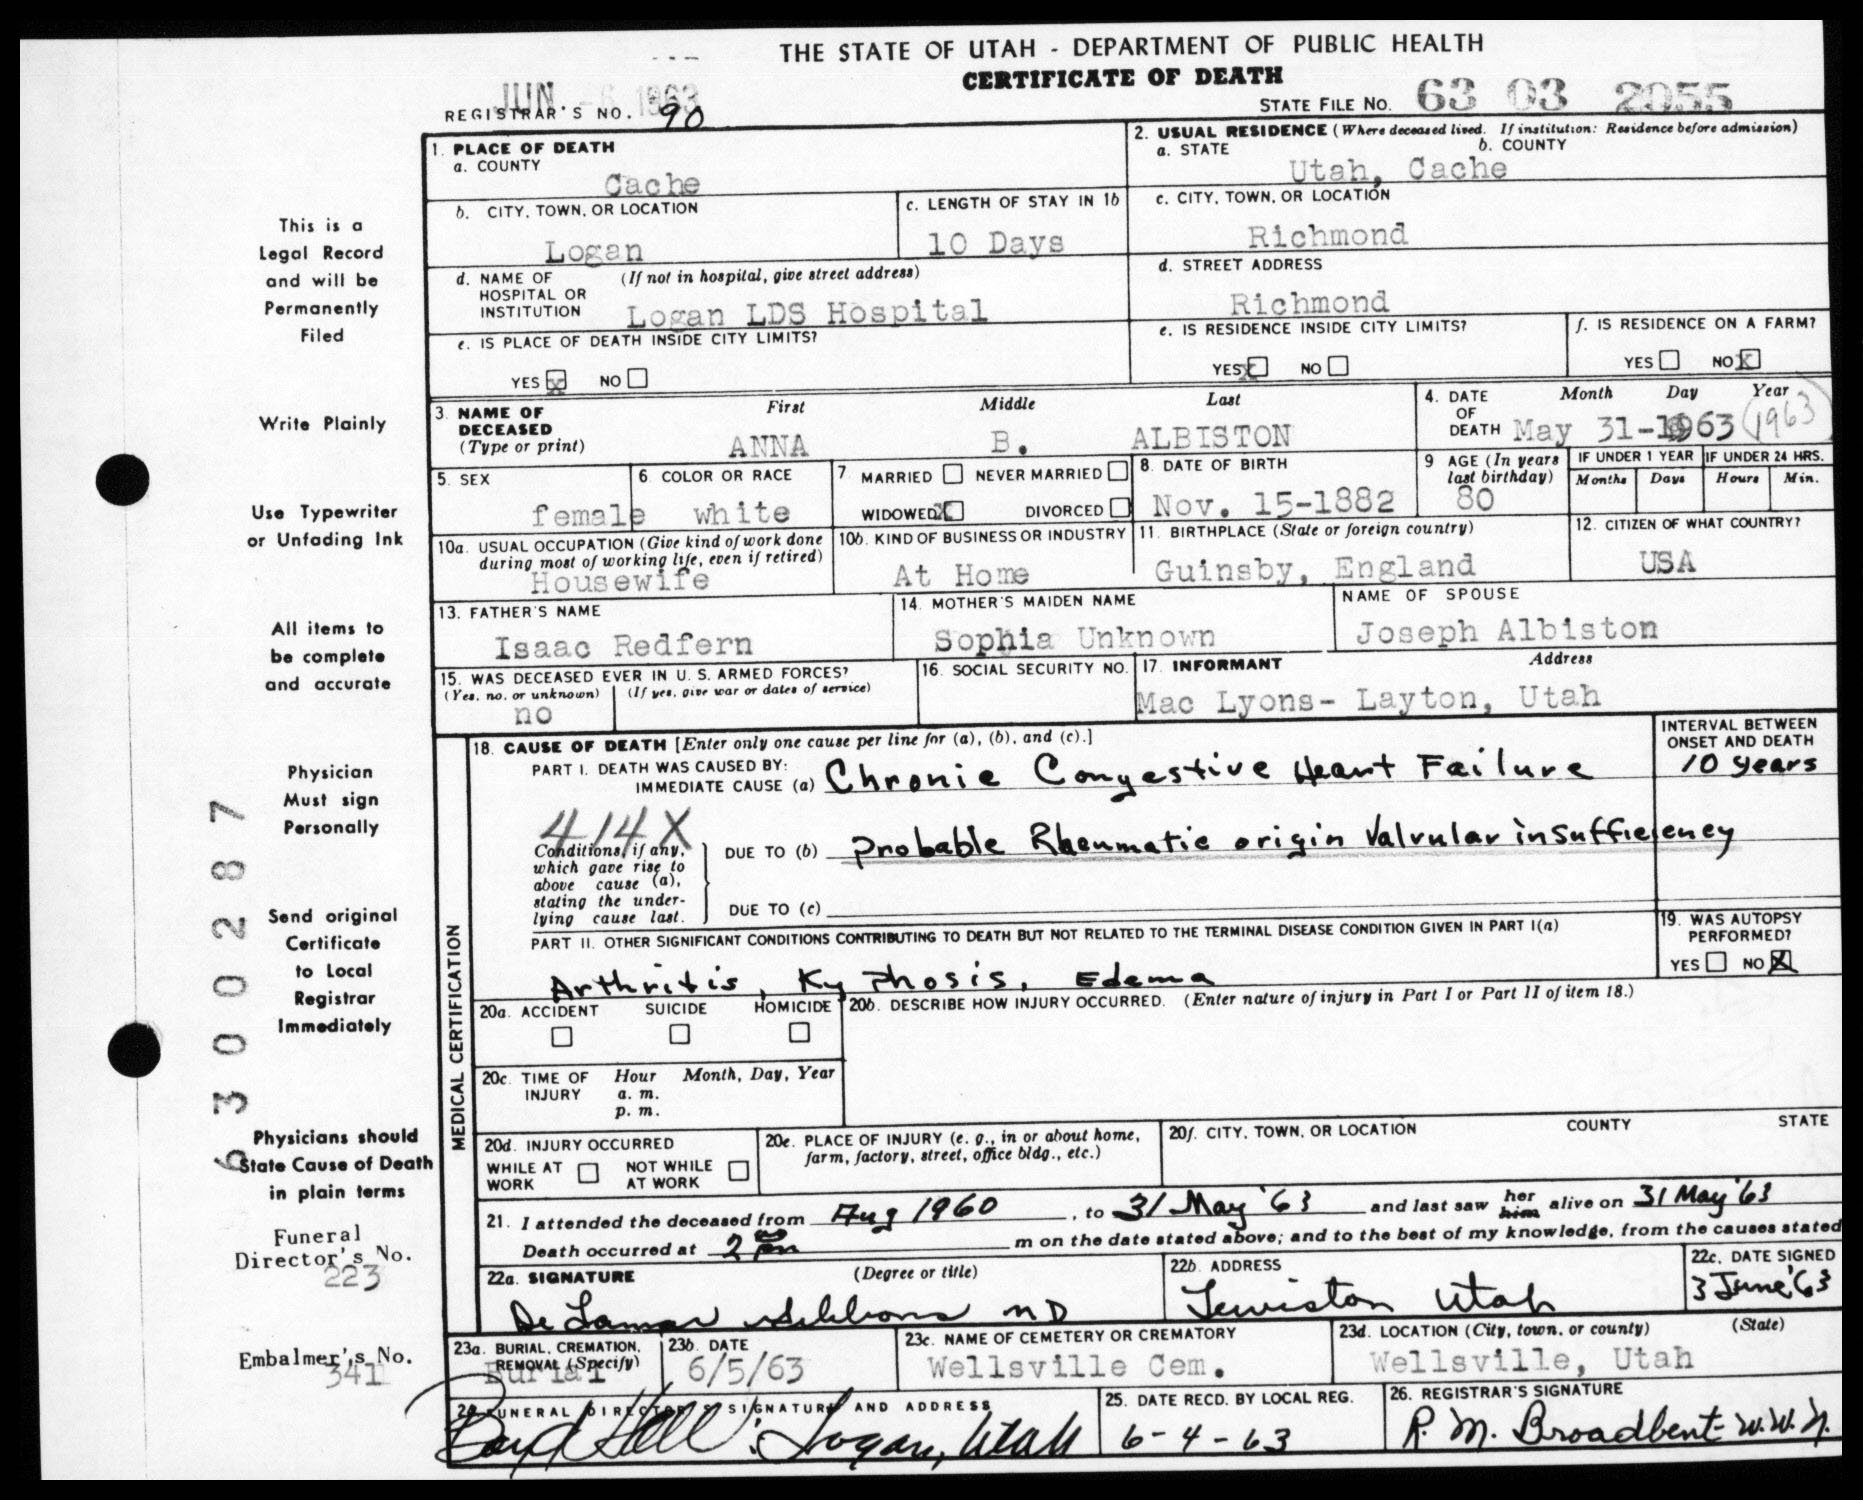 THE STATE OF UTAH - DEPARTMENT OF PUBLIC HEALTH
CERTIFICATE OF DEATH
JUN - 6 1963
REGISTRAR'S NO. 90
STATE FILE NO. 63 03 2055
1. PLACE OF DEATH
a. COUNTY
Cache
2. USUAL RESIDENCE (Where deceased lived. If institution: Residence before admission)
a. STATE b. COUNTY
Utah, Cache
b. CITY, TOWN, OR LOCATION
Logan
c. LENGTH OF STAY IN 1b
10 Days
c. CITY, TOWN, OR LOCATION
Richmond
d. NAME OF HOSPITAL OR INSTITUTION (If not in hospital, give street address)
Logan LDS Hospital
d. STREET ADDRESS
Richmond
e. IS PLACE OF DEATH INSIDE CITY LIMITS?
YES X NO
e. IS RESIDENCE INSIDE CITY LIMITS?
YES X NO
f. IS RESIDENCE ON A FARM?
YES NO X
3. NAME OF DECEASED (Type or print)
First Middle Last
ANNA B. ALBISTON
4. DATE OF DEATH Month Day Year
May 31-1963 (1963)
5. SEX
female
6. COLOR OR RACE
white
7. MARRIED NEVER MARRIED
WIDOWED X DIVORCED
8. DATE OF BIRTH
Nov. 15-1882
9 AGE (In years last birthday)
80
IF UNDER 1 YEAR
Months Days
IF UNDER 24 HRS.
Hours Min.
10a. USUAL OCCUPATION (Give kind of work done during most of working life, even if retired)
Housewife
10b. KIND OF BUSINESS OR INDUSTRY
At Home
11. BIRTHPLACE (State or foreign country)
Guinsby, England
12. CITIZEN OF WHAT COUNTRY?
USA
13. FATHER'S NAME
Isaac Redfern
14. MOTHER'S MAIDEN NAME
Sophia Unknown
NAME OF SPOUSE
Joseph Albiston
15. WAS DECEASED EVER IN U. S. ARMED FORCES?
(Yes, no, or unknown) (If yes, give war or dates of service)
no
16. SOCIAL SECURITY NO.
17. INFORMANT Address
Mac Lyons- Layton, Utah
MEDICAL CERTIFICATION
18. CAUSE OF DEATH [Enter only one cause per line for (a), (b), and (c).]
INTERVAL BETWEEN ONSET AND DEATH
PART I. DEATH WAS CAUSED BY:
IMMEDIATE CAUSE (a) Chronic Congestive Heart Failure 10 years
414X
Conditions, if any, which gave rise to above cause (a), stating the underlying cause last.
DUE TO (b) Probable Rheumatic origin Valvular insufficiency
DUE TO (c)
PART II. OTHER SIGNIFICANT CONDITIONS CONTRIBUTING TO DEATH BUT NOT RELATED TO THE TERMINAL DISEASE CONDITION GIVEN IN PART I(a)
Arthritis, Kyphosis, Edema
19. WAS AUTOPSY PERFORMED?
YES NO X
20a. ACCIDENT SUICIDE HOMICIDE
20b. DESCRIBE HOW INJURY OCCURRED. (Enter nature of injury in Part I or Part II of item 18.)
20c. TIME OF INJURY Hour Month, Day, Year
a. m.
p. m.
20d. INJURY OCCURRED
WHILE AT WORK NOT WHILE AT WORK
20e. PLACE OF INJURY (e. g., in or about home, farm, factory, street, office bldg., etc.)
20f. CITY, TOWN, OR LOCATION COUNTY STATE
21. I attended the deceased from Aug 1960, to 31 May '63 and last saw her him alive on 31 May '63
Death occurred at 2 m on the date stated above; and to the best of my knowledge, from the causes stated
22a. SIGNATURE (Degree or title)
De Lamar Gibbons MD
22b. ADDRESS
Lewiston Utah
22c. DATE SIGNED
3 June '63
23a. BURIAL, CREMATION, REMOVAL (Specify)
Burial
23b. DATE
6/5/63
23c. NAME OF CEMETERY OR CREMATORY
Wellsville Cem.
23d. LOCATION (City, town, or county) (State)
Wellsville, Utah
24. FUNERAL DIRECTOR'S SIGNATURE AND ADDRESS
Boyd Hall, Logan, Utah
25. DATE RECD. BY LOCAL REG.
6-4-63
26. REGISTRAR'S SIGNATURE
R. M. Broadbent W.W.N.
This is a
Legal Record
and will be
Permanently
Filed
Write Plainly
Use Typewriter
or Unfading Ink
All items to
be complete
and accurate
Physician
Must sign
Personally
Send original
Certificate
to Local
Registrar
Immediately
Physicians should
State Cause of Death
in plain terms
Funeral
Director's No.
223
Embalmer's No.
341
6300287